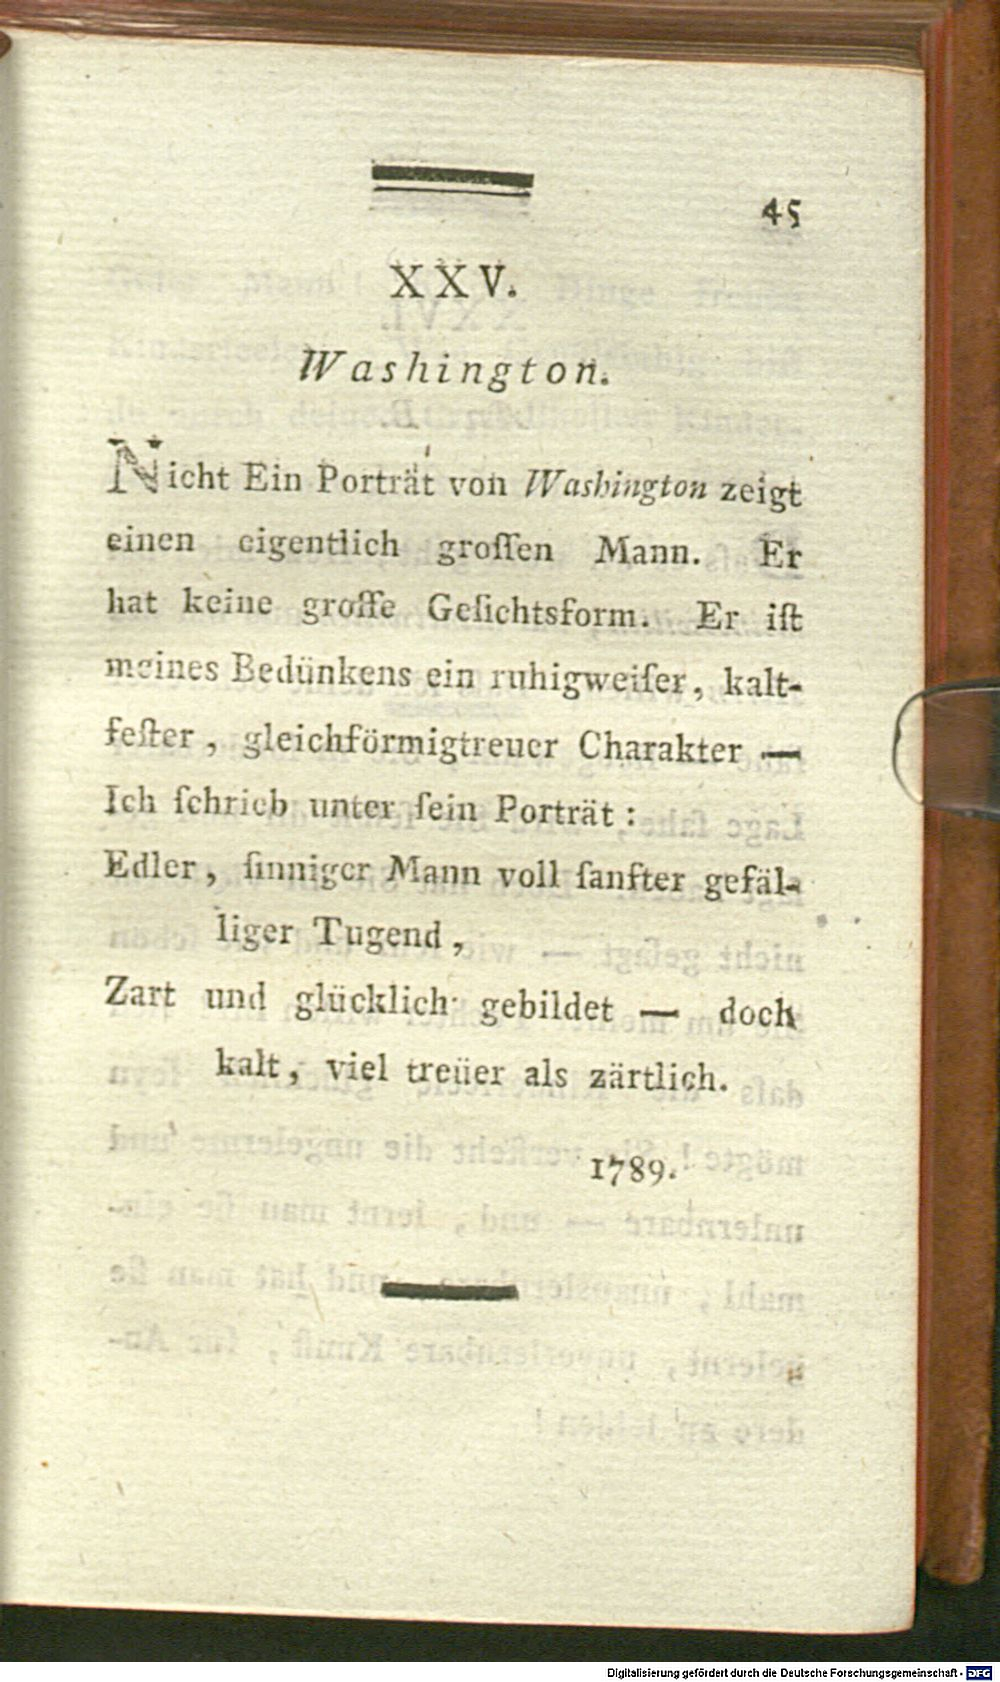 45
XXV.
Washington.
Nicht Ein Porträt von Washington zeigt
einen eigentlich groſſen Mann. Er
hat keine groſſe Geſichtsform. Er iſt
meines Bedünkens ein ruhigweiſer, kalt-
feſter, gleichförmigtreuer Charakter —
Ich ſchrieb unter ſein Porträt:
Edler, ſinniger Mann voll ſanfter gefäl-
liger Tugend,
Zart und glücklich gebildet — doch
kalt, viel treüer als zärtlich.
1789.
Digitalisierung gefördert durch die Deutsche Forschungsgemeinschaft - DFG